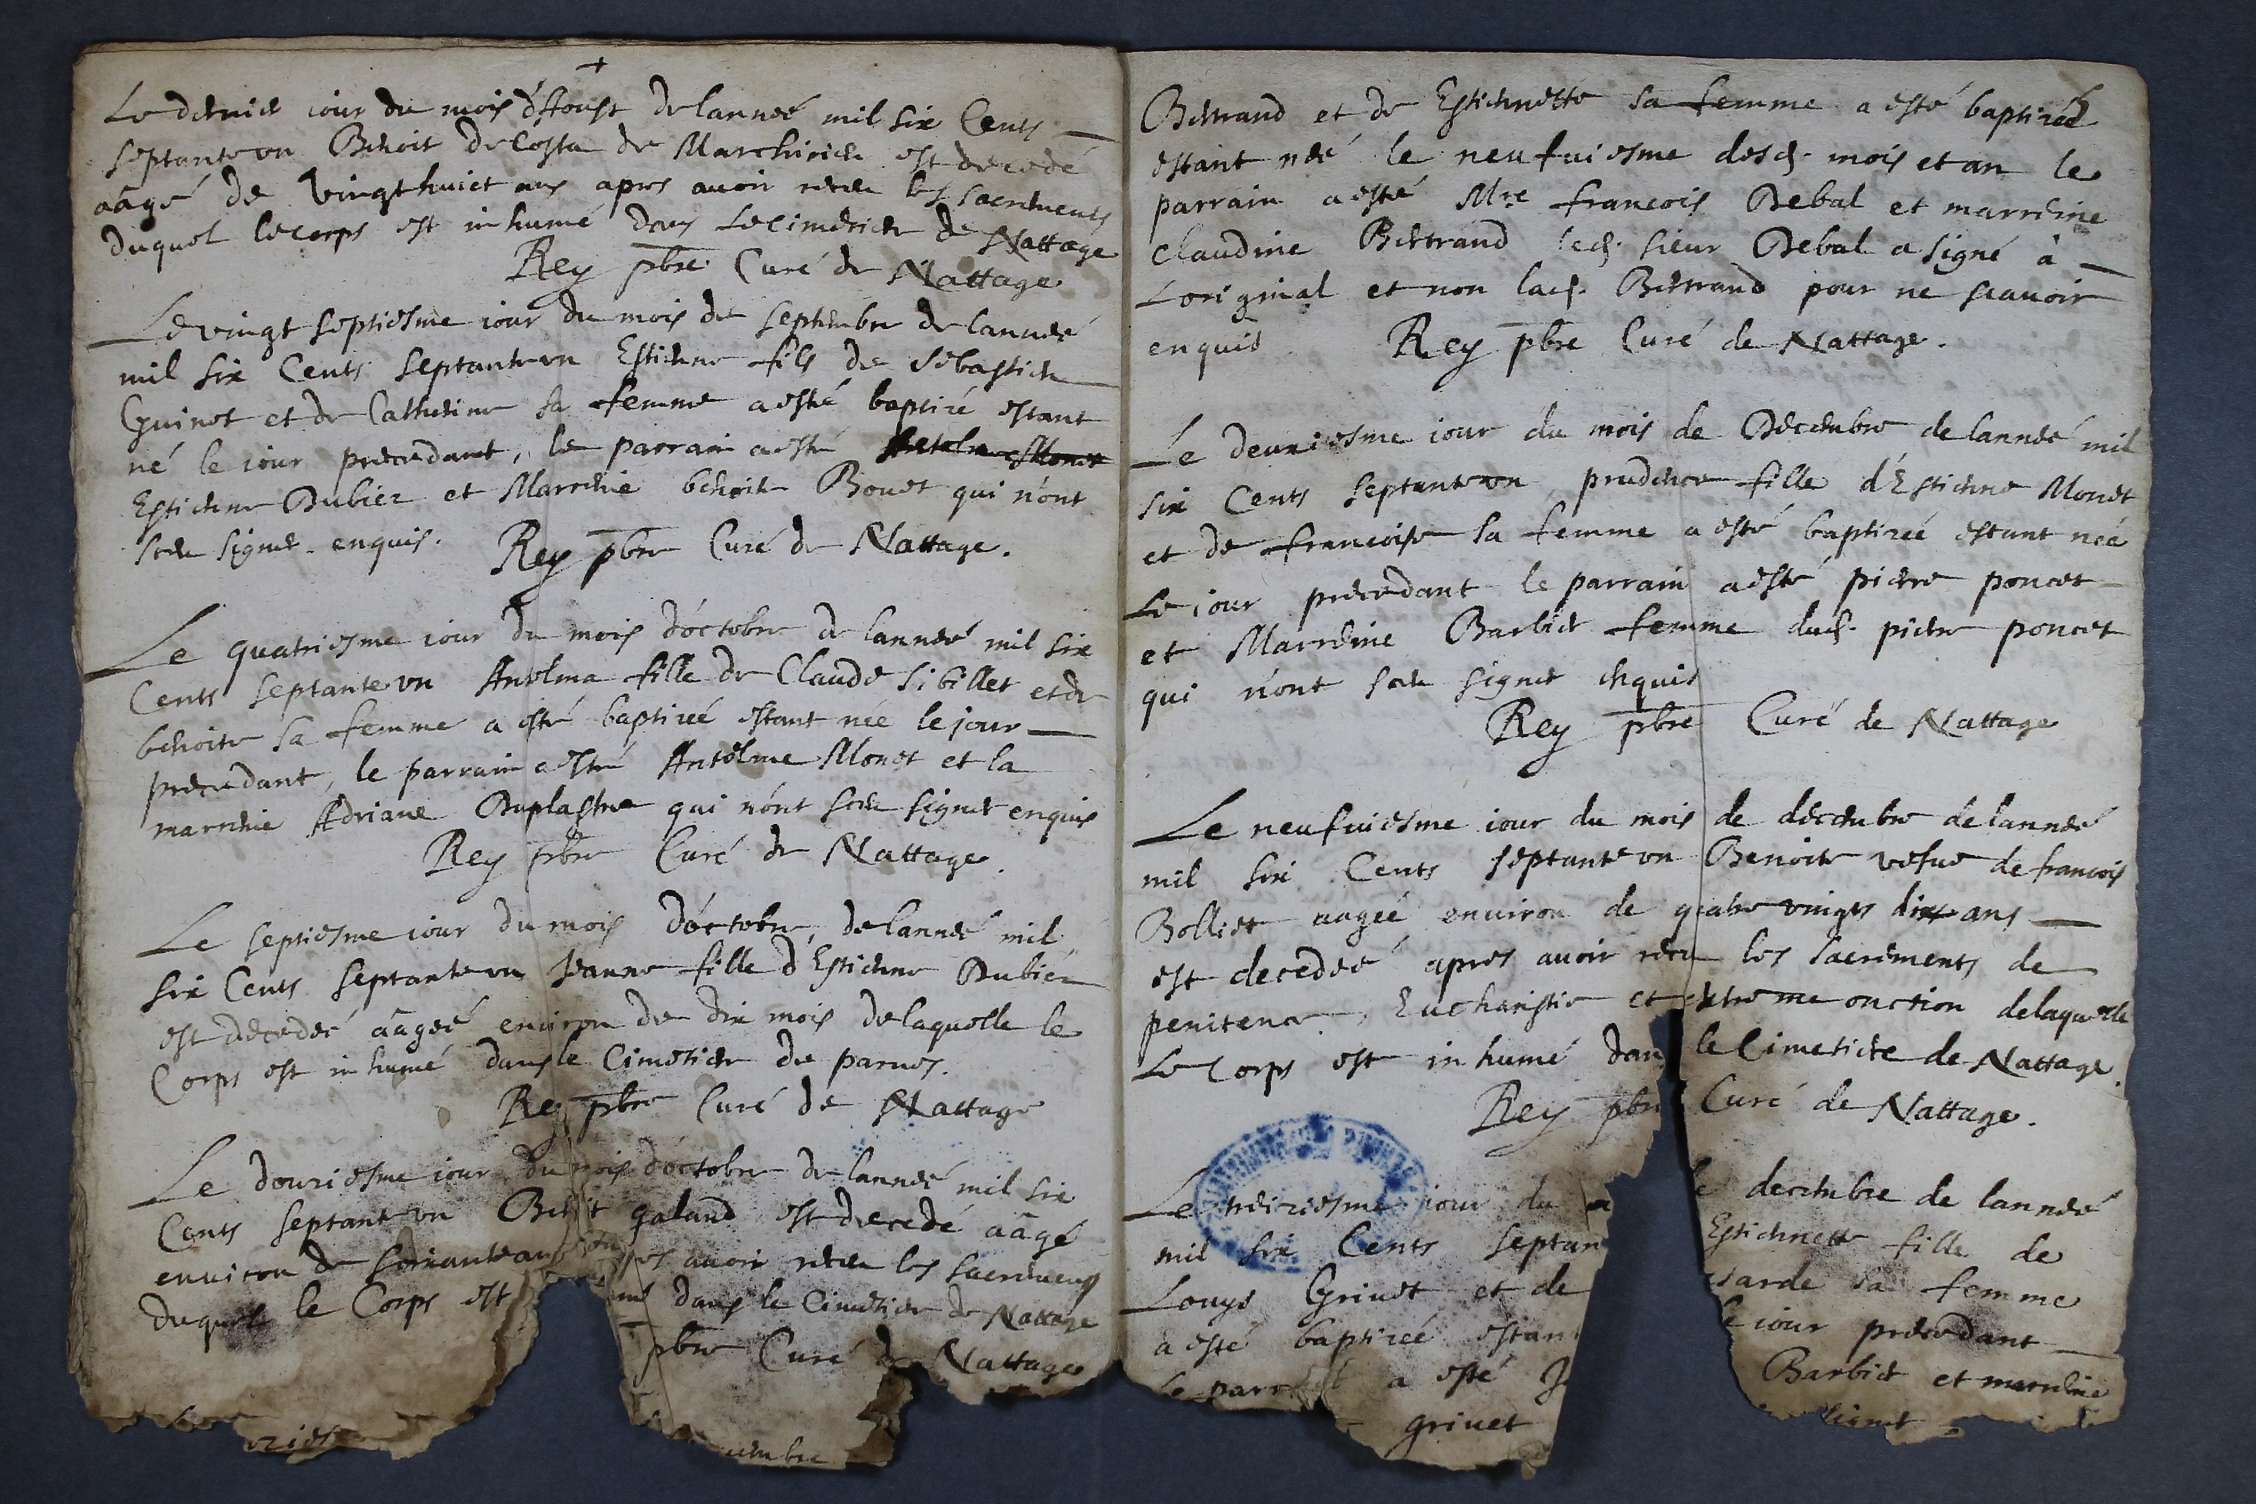 Le dernier iour du mois d'Aoust de lanneé mil six Cents
septante vn Benoit de Costa de Marchirier est decedé
aâgé de vingthuict ans apres auoir receu les sacrements
duquel le corps est inhumé dans le cimetiere de Nattage
Rey pbre Curé de Nattage
Le vingt septiesme iour du mois de septembre de lanneé
mil six Cents septante vn Estienne fils de sebastien
Guinet et de Catherine sa femme a esté baptizé estant
né le iour precedant, le parrain a esté
Estienne Dubiez et Marreine benoite Bouet qui n'ont
sceu signer enquis.
Rey pbre Curé de Nattage.
Le quatriesme iour du mois d'octobre de lanneé mil six
Cents septante vn Antelma fille de Claude Sibillet et de
benoite sa femme a esté baptizeé estant née le jour
precedant, le parrain a esté Antelme Monet et la
marreine Adriane Duplastre qui n'ont sceu signer enquis
Rey pbre Curé de Nattage.
Le septiesme iour du mois d'octobre, de lanneé mil
six Cents septante vn Jeanne fille d'Estienne Dubiez
est decedeé aâgeé enuiron de dix mois de laquelle le
Corps est inhumé dans le Cimetiere de parues.
Rey pbre Curé de Nattage
Le douziesme iour du mois d'octobre de lanneé mil six
Cents septante vn Be it galand est decedé aâgé
enuiron de soixante ans auoir receu les sacrements
duquel le Corps est mé dans le Cimetiere de Nattage
pbre Curé de Nattage
uzies
embre
Bertrand et de Estiennette sa femme a esté baptizeé
estant neé le neufuiesme desd. mois et an le
parrain a esté Mre francois Debal et marreine
Claudine Bertrand led. sieur Debal a signé à
Loriginal et non lad. Bertrand pour ne scauoir
enquis
Rey pbre Curé de Nattage.
Le deuxiesme iour du mois de Decembre de lanneé mil
six Cents septante vn prudence fille d'Estienne Monet
et de francoise sa femme a esté baptizeé estant née
Le iour precedant le parrain a esté pierre poncet
et Marreine Barbier femme dud. pierre poncet
qui n'ont sceu signer enquis
Rey pbre Curé de Nattage
Le neufuiesme iour du mois de decembre de lanneé
mil six Cents septante vn Benoite vefue de francois
Bolliet aageé enuiron de quatre vingts dix ans
est decedeé apres auoir receu les sacrements de
penitence, Eucharistie et extreme onction delaquelle
Le Corps est inhumé dan le Cimetiere de Nattage.
Rey pbr Curé de Nattage.
Le treiziesme iour du e decembre de lanneé
mil six Cents septan Estiennette fille de
Louys Griuet et de sarde sa femme
a esté baptizeé estan le iour precedant
Le parr a esté J Barbier et marreine
griuet signer